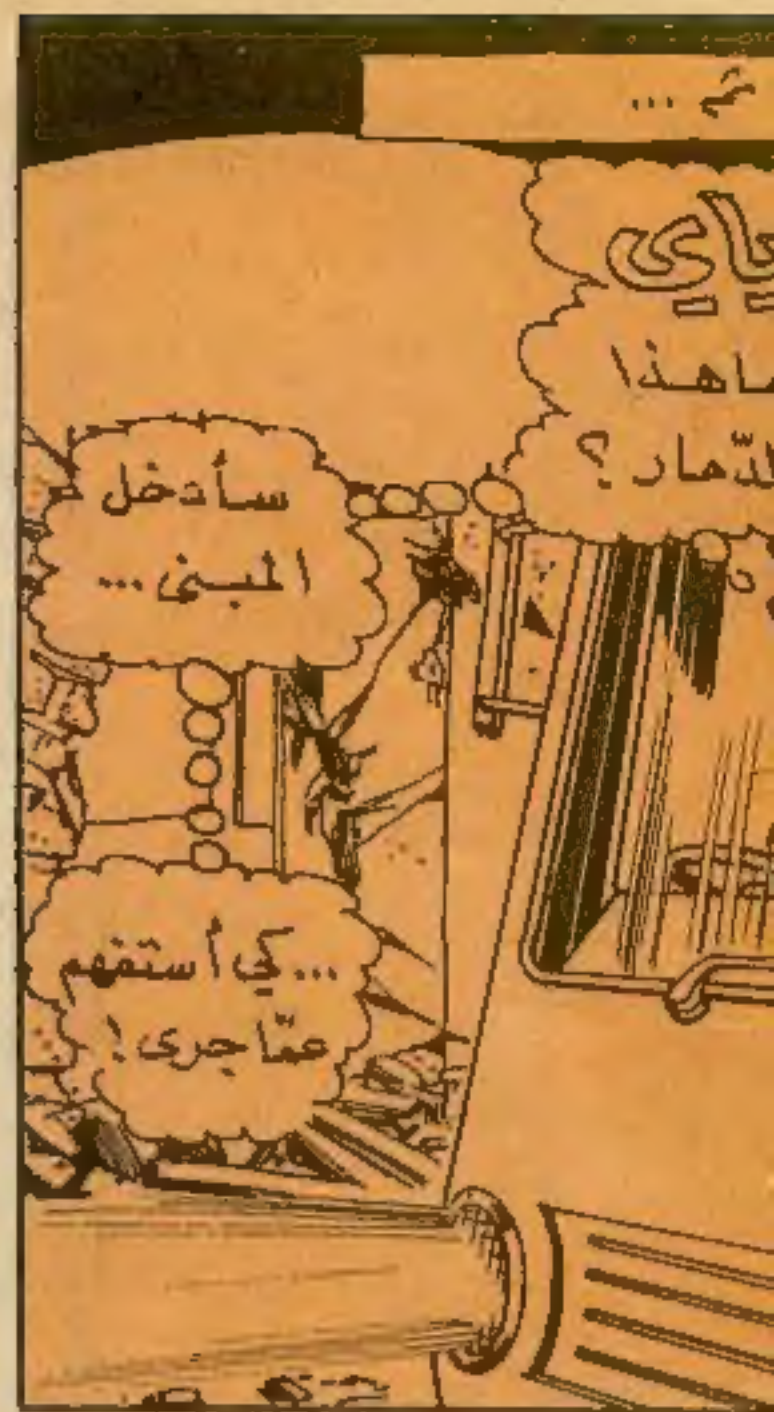 ماهذا
الدّمار ؟
سأدخل
المبنى ...
... كي أستفهم
عمّا جرى !